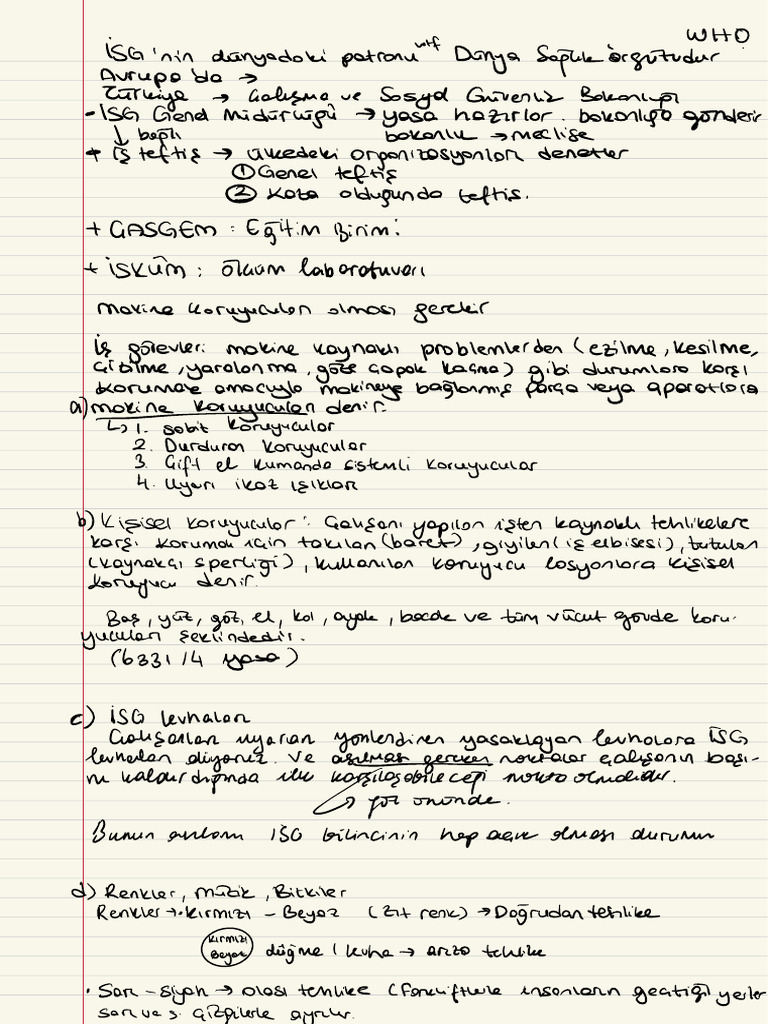 WHO
İSG'nin dünyadaki patronu Dünya Sağlık örgütüdür
Avrupa'da →
Türkiye → Çalışma ve Sosyal Güvenlik Bakanlığı
- İSG Genel Müdürlüğü → yasa hazırlar. bakanlığa gönderir
↓ bağlı bakanlık → meclise
+ iş teftiş → ülkedeki organizasyonları denetler
① Genel teftiş
② Kaza olduğunda teftiş.
+ ÇASGEM : Eğitim Birimi
+ İSKÜM : ölçüm laboratuvarı
makine koruyucuları olması gerekir
İş görevleri makine kaynaklı problemlerden (ezilme, kesilme,
çizilme, yaralanma, göze çapak kaçma) gibi durumlara karşı
korumak amacıyla makineye bağlanmış parça veya aparatlara
a) makine koruyucuları denir.
↳ 1. sabit koruyucular
2. Durduran koruyucular
3. Çift el kumanda sistemli koruyucular
4. Uyarı ikaz ışıkları
b) Kişisel koruyucular : Çalışanı yapılan işten kaynaklı tehlikelere
karşı korumak için takılan (baret), giyilen (iş elbisesi), tutulan
(kaynakçı siperliği), kullanılan koruyucu losyonlara kişisel
koruyucu denir.
Baş, yüz, göz, el, kol, ayak, bacak ve tüm vücut gövde koru-
yucuları şeklindedir.
(6331/4 yasa)
c) İSG levhaları
Çalışanları uyaran yönlendiren yasaklayan levhalara İSG
levhaları diyoruz. ve asılması gereken noktalar çalışanın başı-
nı kaldırdığında ilk karşılaşabileceği nokta olmalıdır.
göz önünde.
Bunun anlamı İSG bilincinin hep açık olması durumu
d) Renkler, müzik, Bitkiler
Renkler → • Kırmızı - Beyaz (Zıt renk) → Doğrudan tehlike
Kırmızı
Beyaz düğme / kutu → arıza tehlike
• Sarı - siyah → olası tehlike (forkliftlerle insanların geçtiği yerler
sarı ve s. çizgilerle ayrılır.